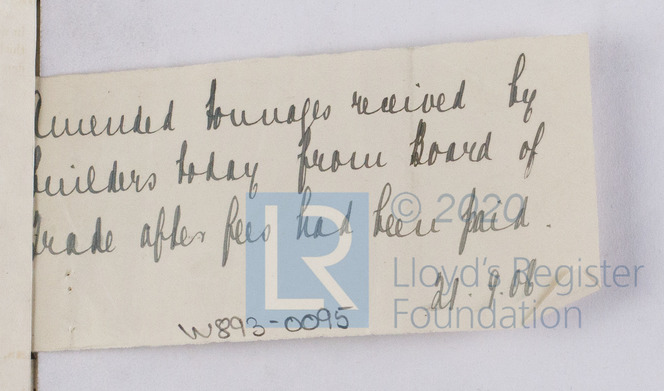 Amended tonnages received by
builders today from Board of
Trade after fees had been paid.
21.9.06
W893-0095
LR
© 2020
Lloyd's Register
Foundation